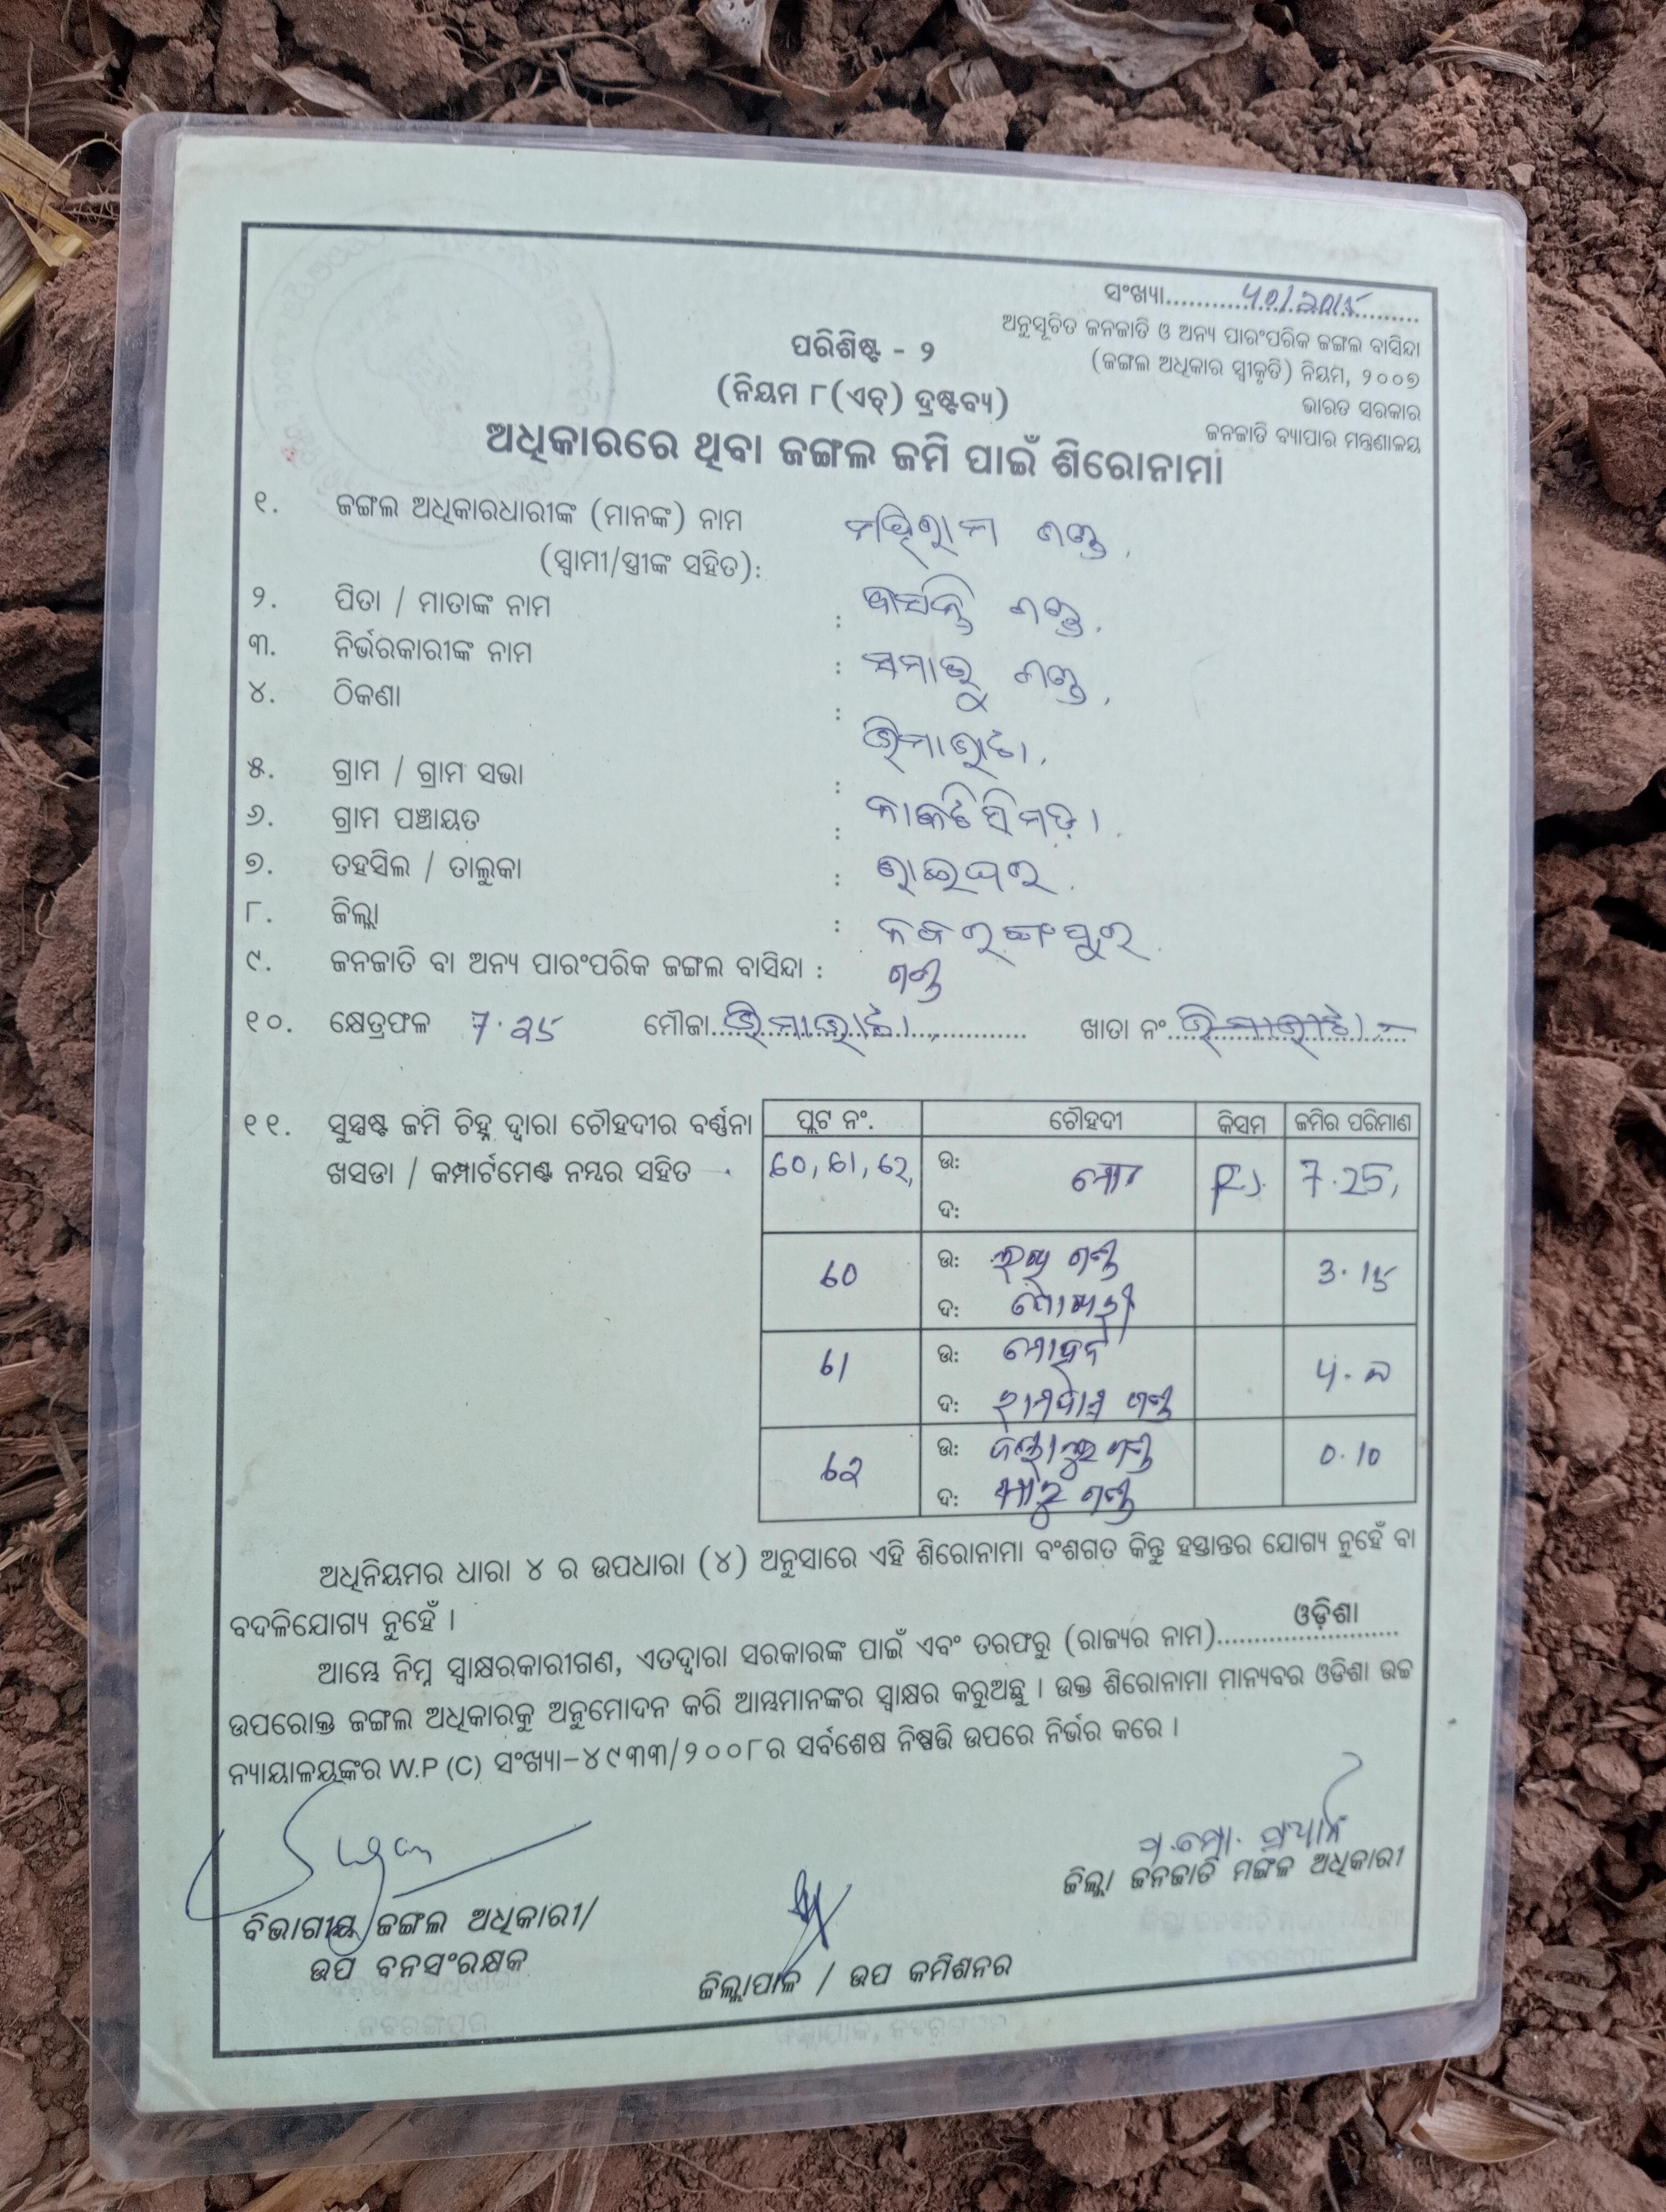 ସଂଖ୍ୟା..........୪୦/2015..........
ଅନୁସୂଚିତ ଜନଜାତି ଓ ଅନ୍ୟ ପାରଂପରିକ ଜଙ୍ଗଲ ବାସିନ୍ଦା
(ଜଙ୍ଗଲ ଅଧିକାର ସ୍ୱୀକୃତି) ନିୟମ, ୨୦୦୭
ଭାରତ ସରକାର
ଜନଜାତି ବ୍ୟାପାର ମନ୍ତ୍ରଣାଳୟ
ପରିଶିଷ୍ଟ - ୨
(ନିୟମ ୮(ଏଚ୍) ଦ୍ରଷ୍ଟବ୍ୟ)
ଅଧିକାରରେ ଥିବା ଜଙ୍ଗଲ ଜମି ପାଇଁ ଶିରୋନାମା
୧. ଜଙ୍ଗଲ ଅଧିକାରଧାରୀଙ୍କ (ମାନଙ୍କ) ନାମ ଗଣ୍ଡ
(ସ୍ୱାମୀ/ସ୍ତ୍ରୀଙ୍କ ସହିତ):
୨. ପିତା / ମାତାଙ୍କ ନାମ : ଗଣ୍ଡ
୩. ନିର୍ଭରକାରୀଙ୍କ ନାମ : ସମାରୁ ଗଣ୍ଡ
୪. ଠିକଣା :
୫. ଗ୍ରାମ / ଗ୍ରାମ ସଭା :
୬. ଗ୍ରାମ ପଞ୍ଚାୟତ :
୭. ତହସିଲ / ତାଲୁକା : ରାଇଘର
୮. ଜିଲ୍ଲା : ନବରଙ୍ଗପୁର
୯. ଜନଜାତି ବା ଅନ୍ୟ ପାରଂପରିକ ଜଙ୍ଗଲ ବାସିନ୍ଦା : ଗଣ୍ଡ
୧୦. କ୍ଷେତ୍ରଫଳ 7.25 ମୌଜା.......... ଖାତା ନଂ..........
୧୧. ସୁସ୍ପଷ୍ଟ ଜମି ଚିହ୍ନ ଦ୍ୱାରା ଚୌହଦୀର ବର୍ଣ୍ଣନା
ଖସଡା / କମ୍ପାର୍ଟମେଣ୍ଟ ନମ୍ବର ସହିତ
ପ୍ଲଟ ନଂ. ଚୌହଦୀ କିସମ ଜମିର ପରିମାଣ
60, 61, 62, ଉ: 7.25,
ଦ:
60 ଉ: ଗଣ୍ଡ 3.15
ଦ:
61 ଉ: ମୋହନ
ଦ: ଗଣ୍ଡ
62 ଉ: ଗଣ୍ଡ 0.10
ଦ: ଗଣ୍ଡ
ଅଧିନିୟମର ଧାରା ୪ ର ଉପଧାରା (୪) ଅନୁସାରେ ଏହି ଶିରୋନାମା ବଂଶଗତ କିନ୍ତୁ ହସ୍ତାନ୍ତର ଯୋଗ୍ୟ ନୁହେଁ ବା
ବଦଳିଯୋଗ୍ୟ ନୁହେଁ ।
ଆମ୍ଭେ ନିମ୍ନ ସ୍ୱାକ୍ଷରକାରୀଗଣ, ଏତଦ୍ୱାରା ସରକାରଙ୍କ ପାଇଁ ଏବଂ ତରଫରୁ (ରାଜ୍ୟର ନାମ)..........ଓଡ଼ିଶା..........
ଉପରୋକ୍ତ ଜଙ୍ଗଲ ଅଧିକାରକୁ ଅନୁମୋଦନ କରି ଆମ୍ଭମାନଙ୍କର ସ୍ୱାକ୍ଷର କରୁଅଛୁ । ଉକ୍ତ ଶିରୋନାମା ମାନ୍ୟବର ଓଡିଶା ଉଚ୍ଚ
ନ୍ୟାୟାଳୟଙ୍କର W.P (C) ସଂଖ୍ୟା–୪୯୩୩/୨୦୦୮ର ସର୍ବଶେଷ ନିଷ୍ପତ୍ତି ଉପରେ ନିର୍ଭର କରେ ।
ଜିଲ୍ଲା ଜନଜାତି ମଙ୍ଗଳ ଅଧିକାରୀ
ବିଭାଗୀୟ ଜଙ୍ଗଲ ଅଧିକାରୀ/
ଉପ ବନସଂରକ୍ଷକ
ଜିଲ୍ଲାପାଳ / ଉପ କମିଶନର